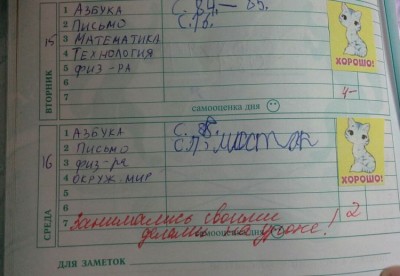 15
ВТОРНИК
1 АЗБУКА С. 84 – 85.
2 ПИСЬМО С. 16.
3 МАТЕМАТИКА
4 ТЕХНОЛОГИЯ
5 ФИЗ-РА
6
7
ХОРОШО!
4-
самооценка дня
16
СРЕДА
1 АЗБУКА
2 ПИСЬМО мосток
3 ФИЗ-РА
4 ОКРУЖ. МИР
5
6
7 Занимались своими
делами на уроке!
ХОРОШО!
2
ДЛЯ ЗАМЕТОК